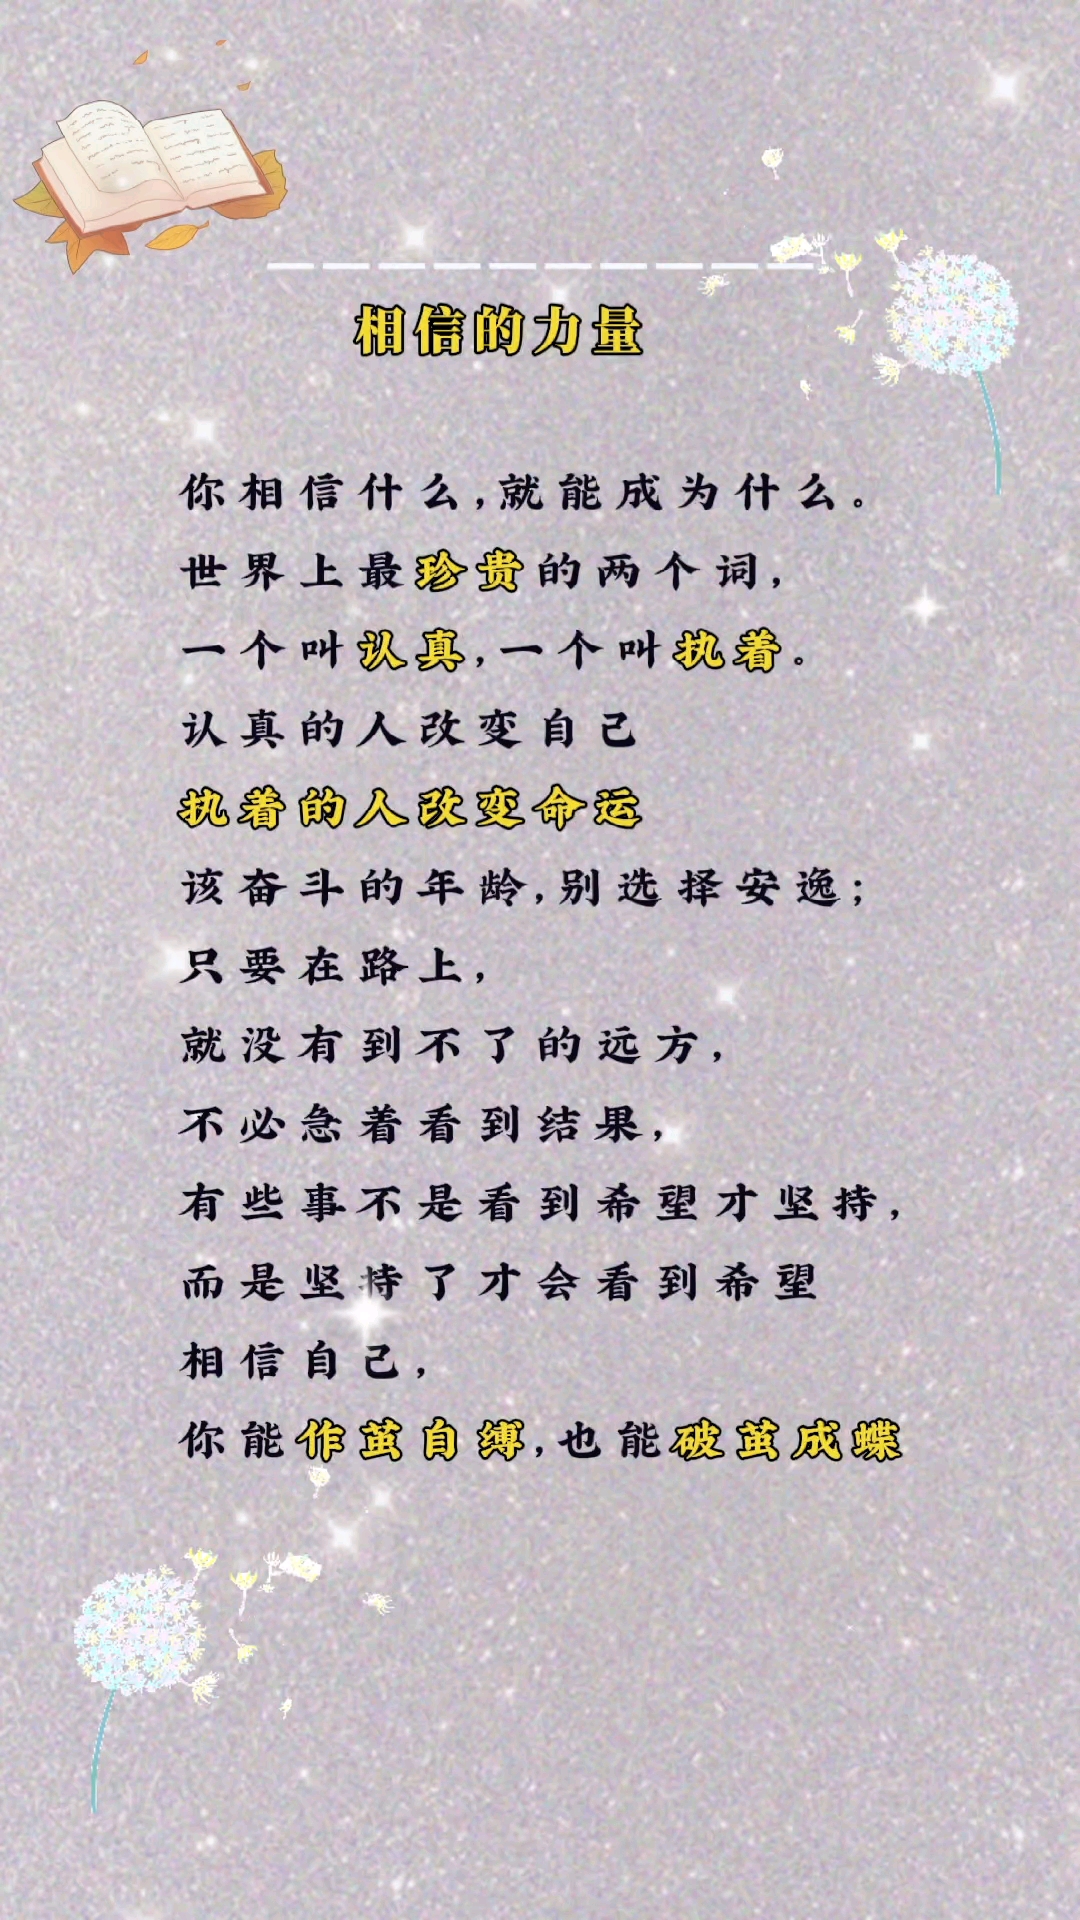 相信的力量
你相信什么,就能成为什么。
世界上最珍贵的两个词,
一个叫认真,一个叫执着。
认真的人改变自己
执着的人改变命运
该奋斗的年龄,别选择安逸;
只要在路上,
就没有到不了的远方,
不必急着看到结果,
有些事不是看到希望才坚持,
而是坚持了才会看到希望
相信自己,
你能作茧自缚,也能破茧成蝶